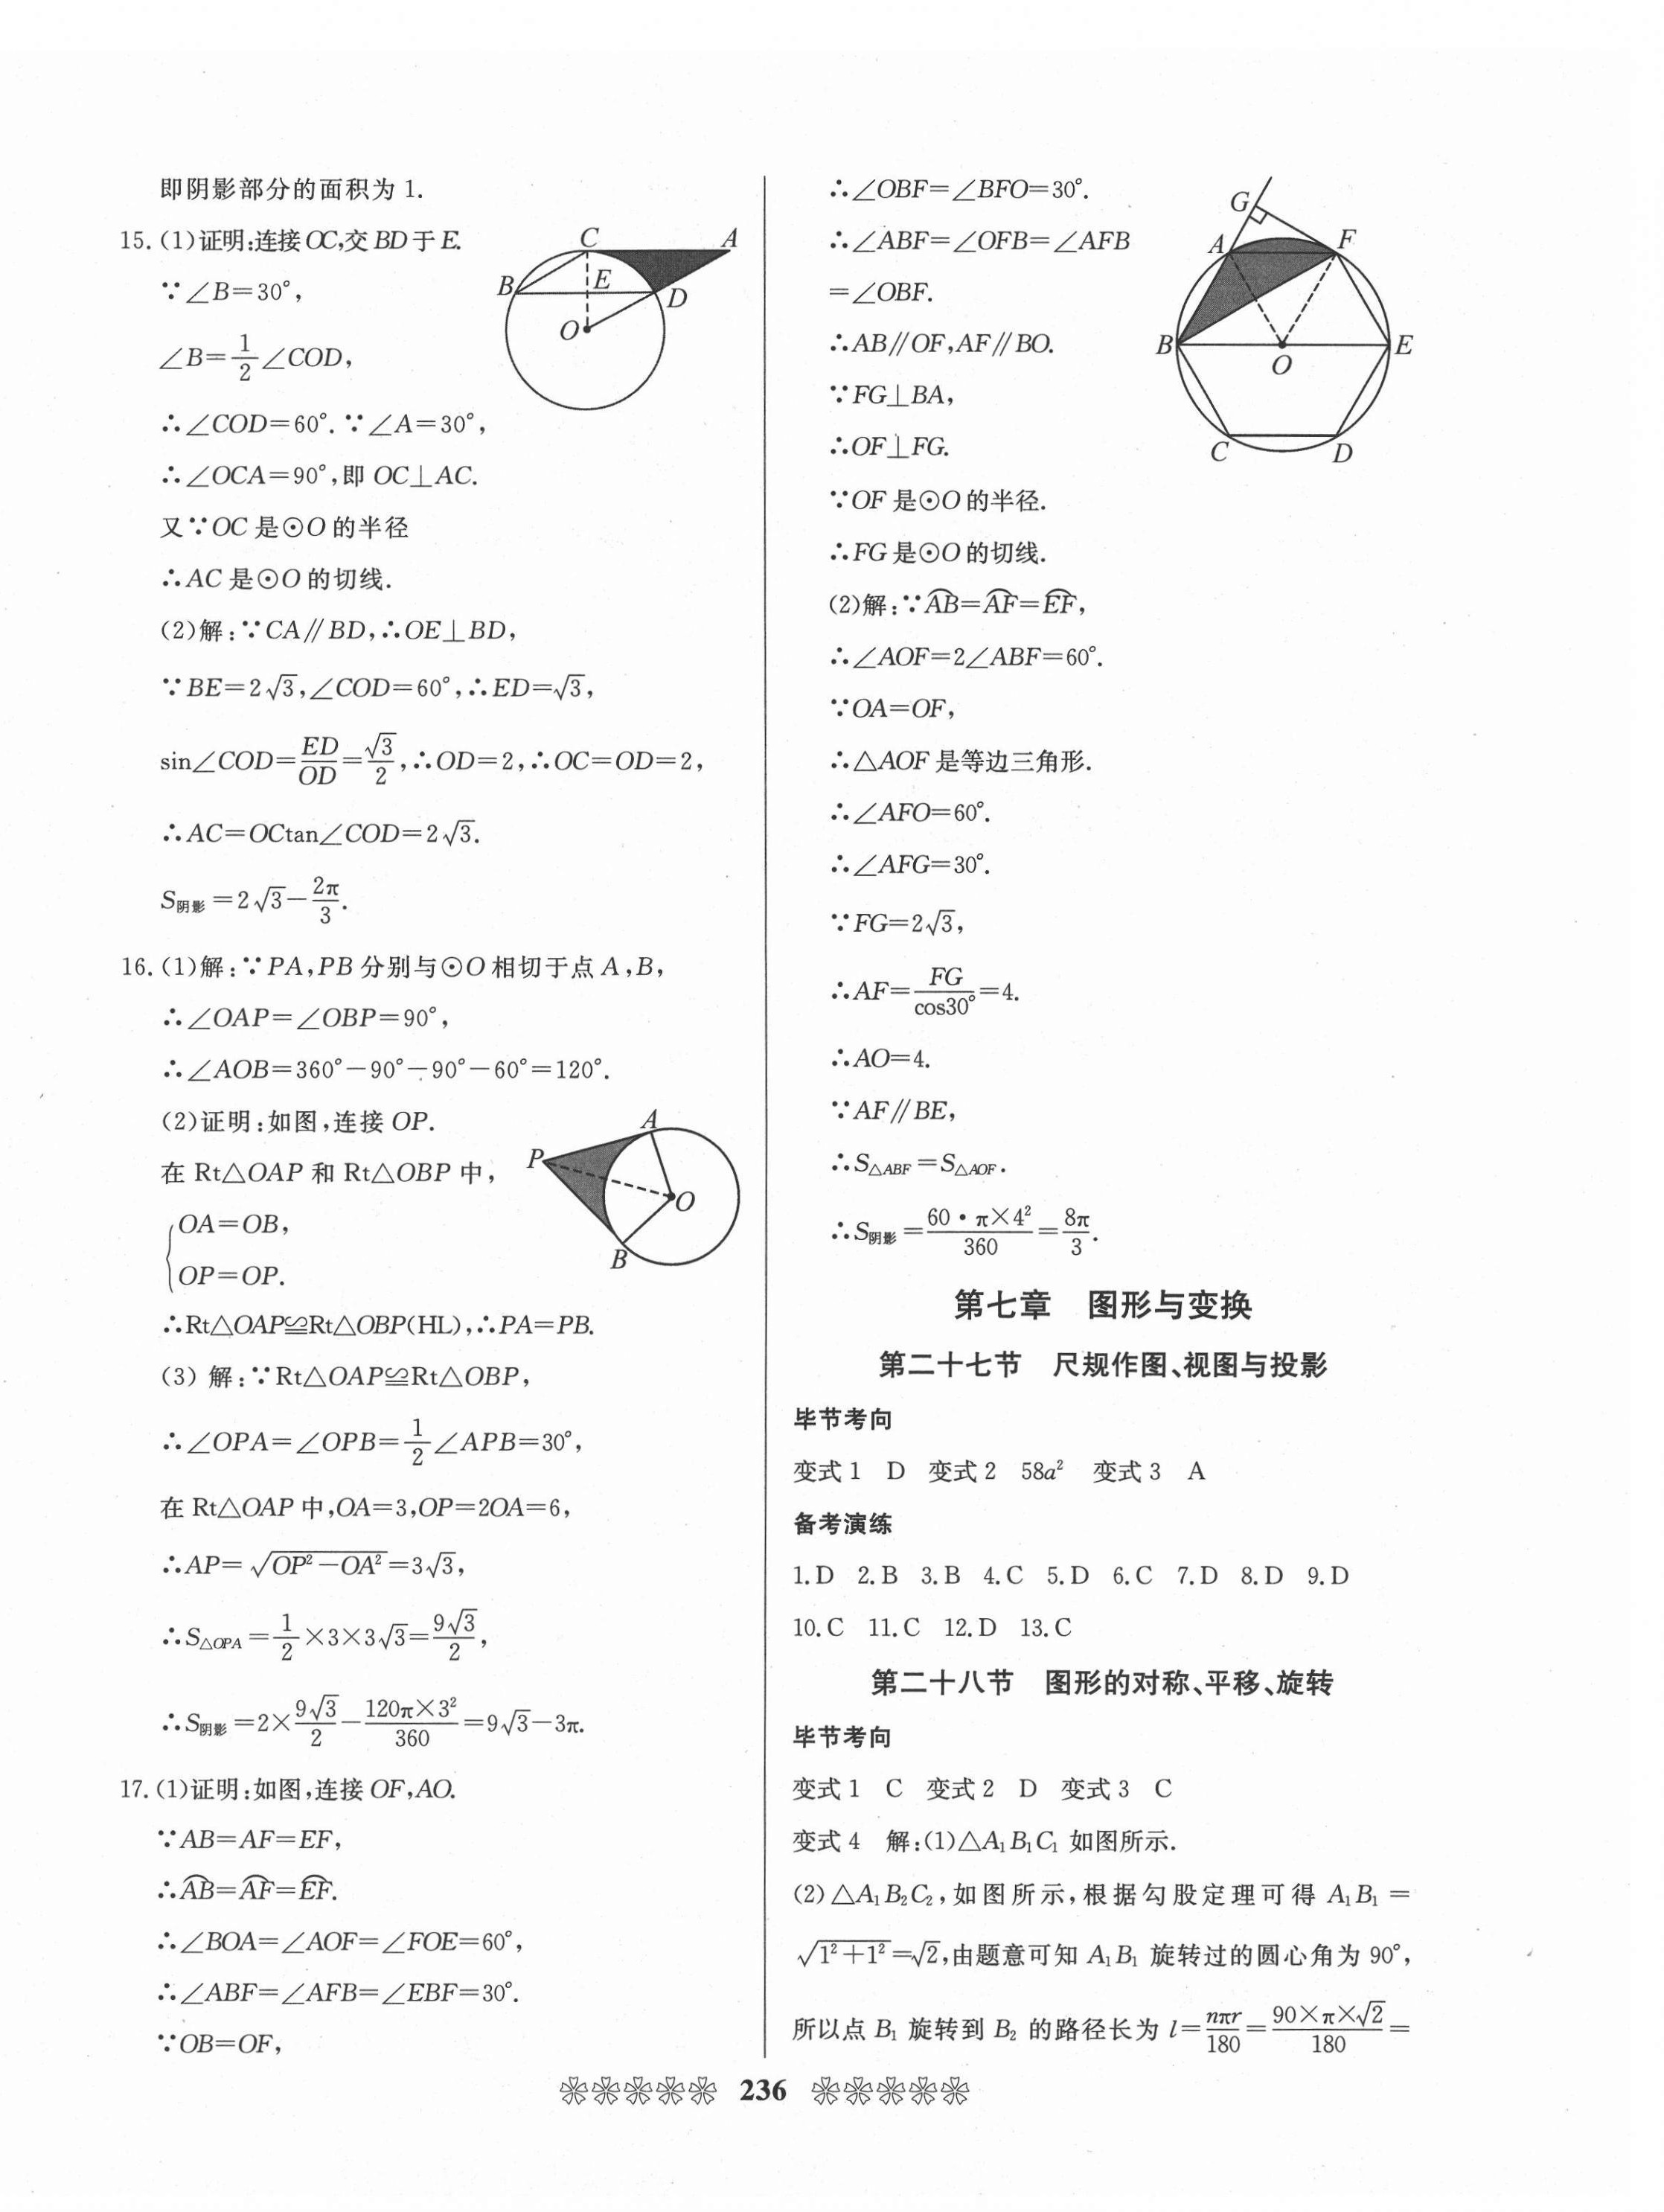 即阴影部分的面积为 1.
15. (1)证明:连接 OC,交 BD 于 E.
∵∠B=30°,
∠B=\frac{1}{2}∠COD,
∴∠COD=60°. ∵∠A=30°,
∴∠OCA=90°,即 OC⊥AC.
又∵OC 是⊙O 的半径
∴AC 是⊙O 的切线.
(2)解:∵CA∥BD,∴OE⊥BD,
∵BE=2√3,∠COD=60°,∴ED=√3,
sin∠COD=\frac{ED}{OD}=\frac{√3}{2},∴OD=2,∴OC=OD=2,
∴AC=OCtan∠COD=2√3.
S阴影=2√3-\frac{2π}{3}.
C A B E D O
16. (1)解:∵PA,PB 分别与⊙O 相切于点 A,B,
∴∠OAP=∠OBP=90°,
∴∠AOB=360°-90°-90°-60°=120°.
(2)证明:如图,连接 OP.
在 Rt△OAP 和 Rt△OBP 中,
{OA=OB,
OP=OP.
∴Rt△OAP≌Rt△OBP(HL),∴PA=PB.
A P O B
(3) 解:∵Rt△OAP≌Rt△OBP,
∴∠OPA=∠OPB=\frac{1}{2}∠APB=30°,
在 Rt△OAP 中,OA=3,OP=2OA=6,
∴AP=\sqrt{OP²-OA²}=3√3,
∴S△OPA=\frac{1}{2}×3×3√3=\frac{9√3}{2},
∴S阴影=2×\frac{9√3}{2}-\frac{120π×3²}{360}=9√3-3π.
17. (1)证明:如图,连接 OF,AO.
∵AB=AF=EF,
∴\overset{⌒}{AB}=\overset{⌒}{AF}=\overset{⌒}{EF}.
∴∠BOA=∠AOF=∠FOE=60°,
∴∠ABF=∠AFB=∠EBF=30°.
∵OB=OF,
∴∠OBF=∠BFO=30°.
∴∠ABF=∠OFB=∠AFB
=∠OBF.
∴AB∥OF,AF∥BO.
∵FG⊥BA,
∴OF⊥FG.
∵OF 是⊙O 的半径.
∴FG 是⊙O 的切线.
G A F B O E C D
(2)解:∵\overset{⌒}{AB}=\overset{⌒}{AF}=\overset{⌒}{EF},
∴∠AOF=2∠ABF=60°.
∵OA=OF,
∴△AOF 是等边三角形.
∴∠AFO=60°.
∴∠AFG=30°.
∵FG=2√3,
∴AF=\frac{FG}{cos30°}=4.
∴AO=4.
∵AF∥BE,
∴S△ABF=S△AOF.
∴S阴影=\frac{60·π×4²}{360}=\frac{8π}{3}.
第七章 图形与变换
第二十七节 尺规作图、视图与投影
毕节考向
变式 1 D 变式 2 58a² 变式 3 A
备考演练
1. D 2. B 3. B 4. C 5. D 6. C 7. D 8. D 9. D
10. C 11. C 12. D 13. C
第二十八节 图形的对称、平移、旋转
毕节考向
变式 1 C 变式 2 D 变式 3 C
变式 4 解:(1)△A₁B₁C₁ 如图所示.
(2)△A₁B₂C₂,如图所示,根据勾股定理可得 A₁B₁=
\sqrt{1²+1²}=√2,由题意可知 A₁B₁ 旋转过的圆心角为 90°,
所以点 B₁ 旋转到 B₂ 的路径长为 l=\frac{nπr}{180}=\frac{90×π×√2}{180}=
236